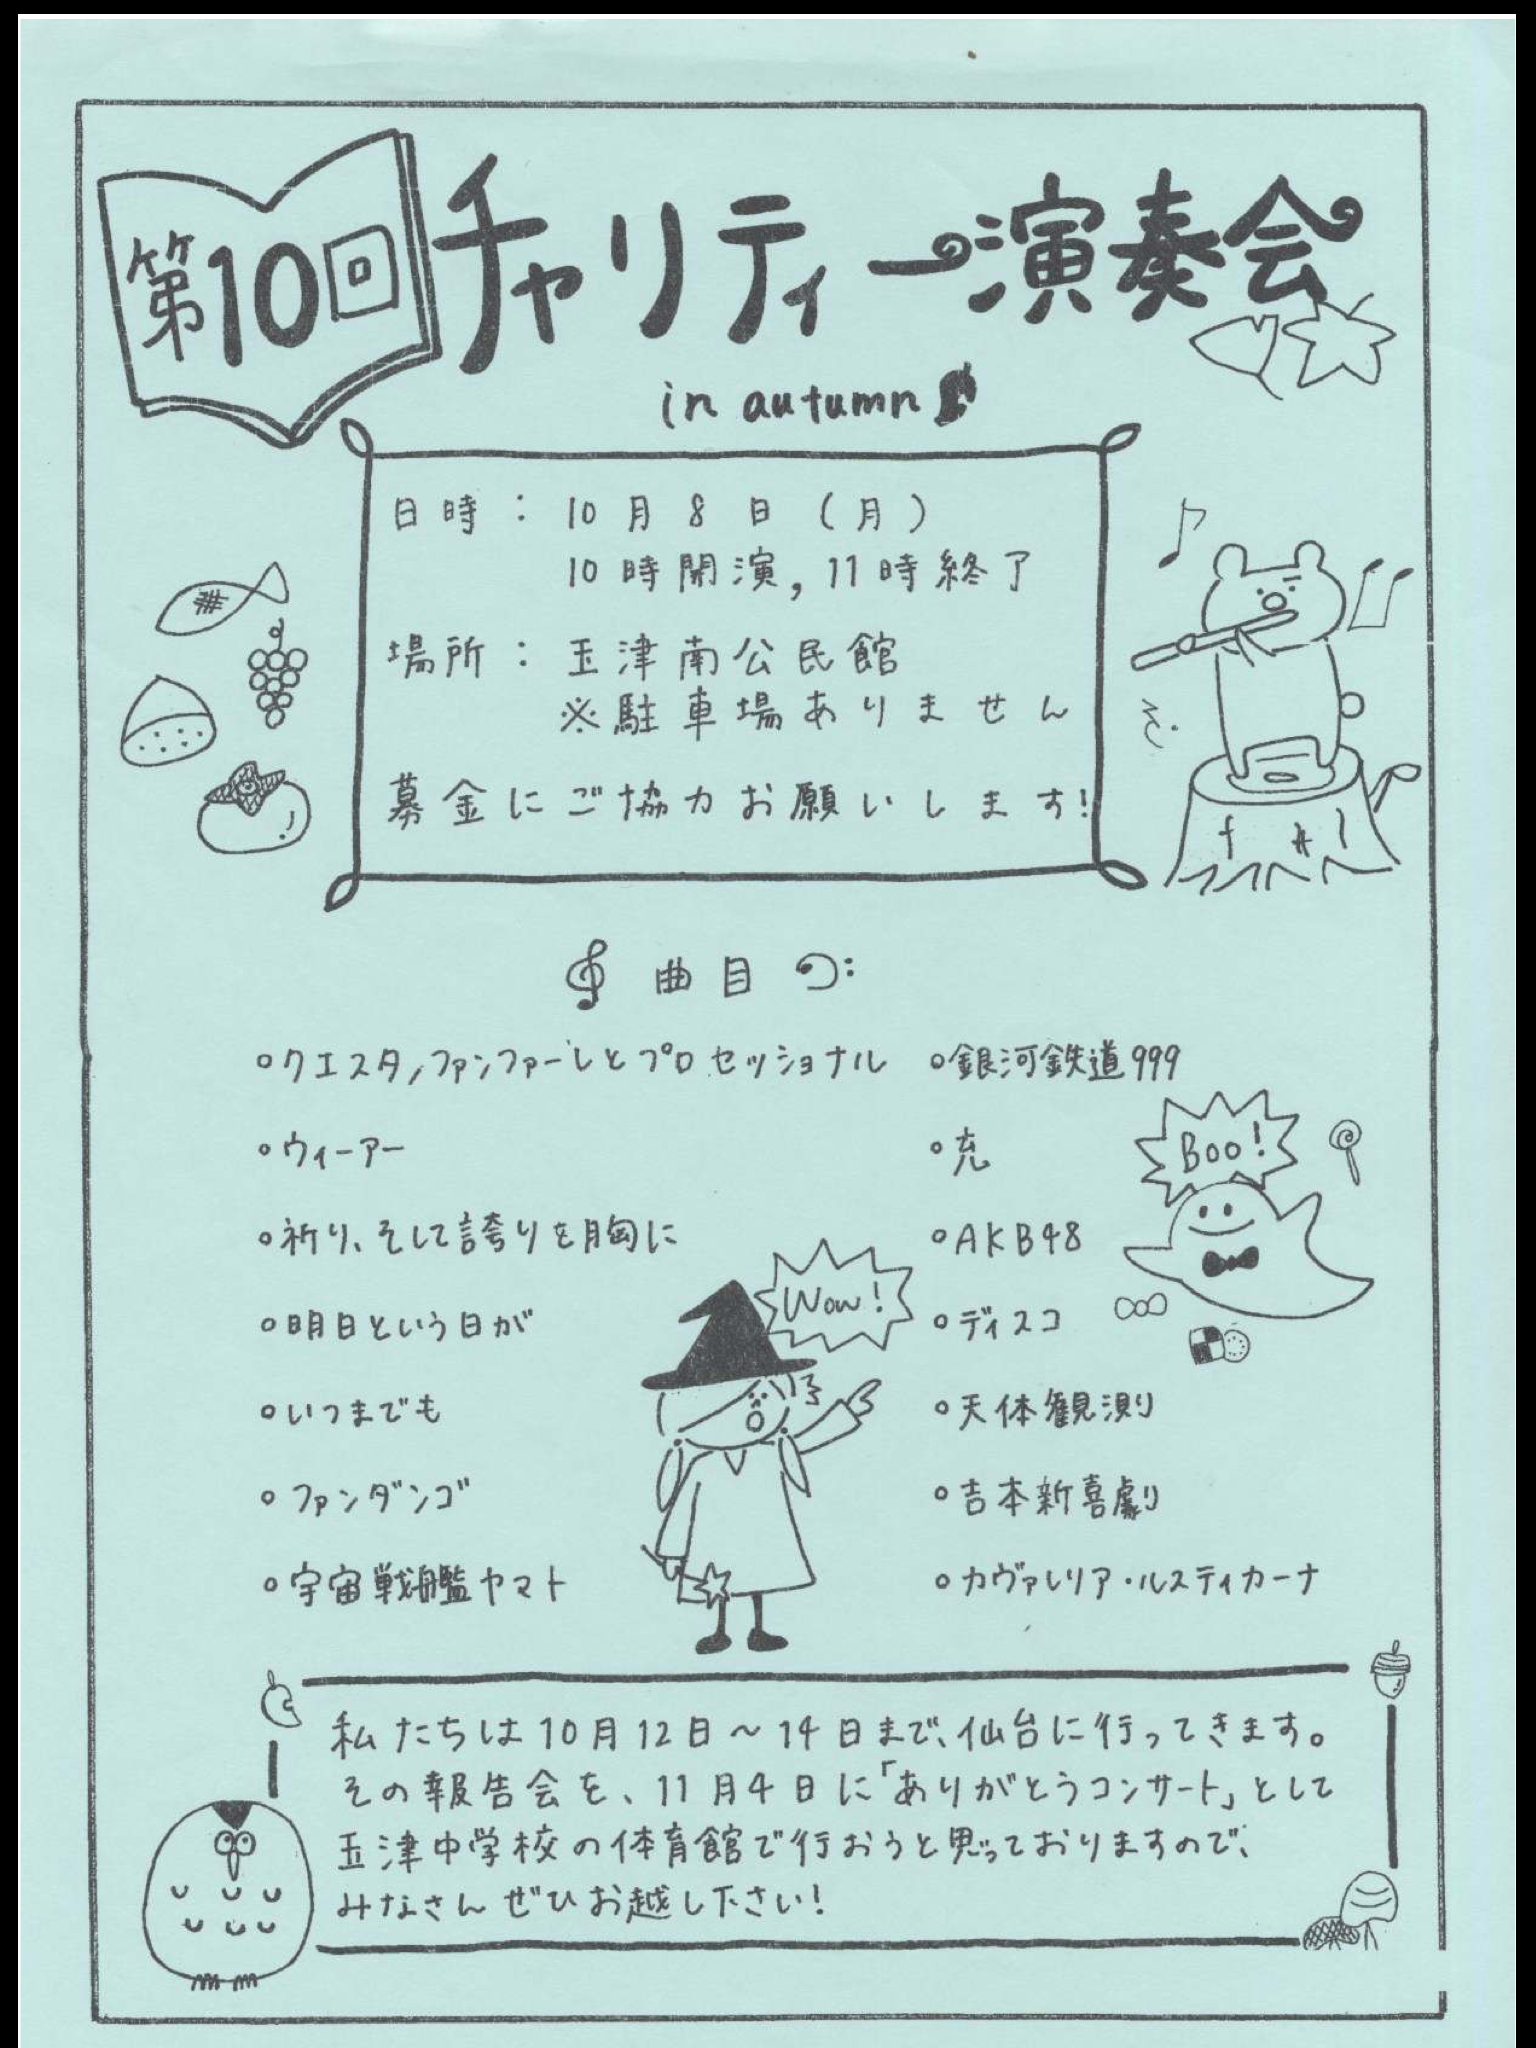 第10回 チャリティー演奏会
in autumn
日時：10月8日(月)
10時開演, 11時終了
場所：玉津南公民館
※駐車場ありません
募金にご協力お願いします!
曲目
○クエスタ,ファンファーレとプロセッショナル
○ウィーアー
○祈り、そして誇りを胸に
○明日という日が
○いつまでも
○ファンダンゴ
○宇宙戦艦ヤマト
○銀河鉄道999
○充
○AKB48
○ディスコ
○天体観測
○吉本新喜劇
○カヴァレリア・ルスティカーナ
Boo!
Wow!
私たちは10月12日～14日まで、仙台に行ってきます。
その報告会を、11月4日に「ありがとうコンサート」として
玉津中学校の体育館で行おうと思っておりますので、
みなさんぜひお越し下さい!